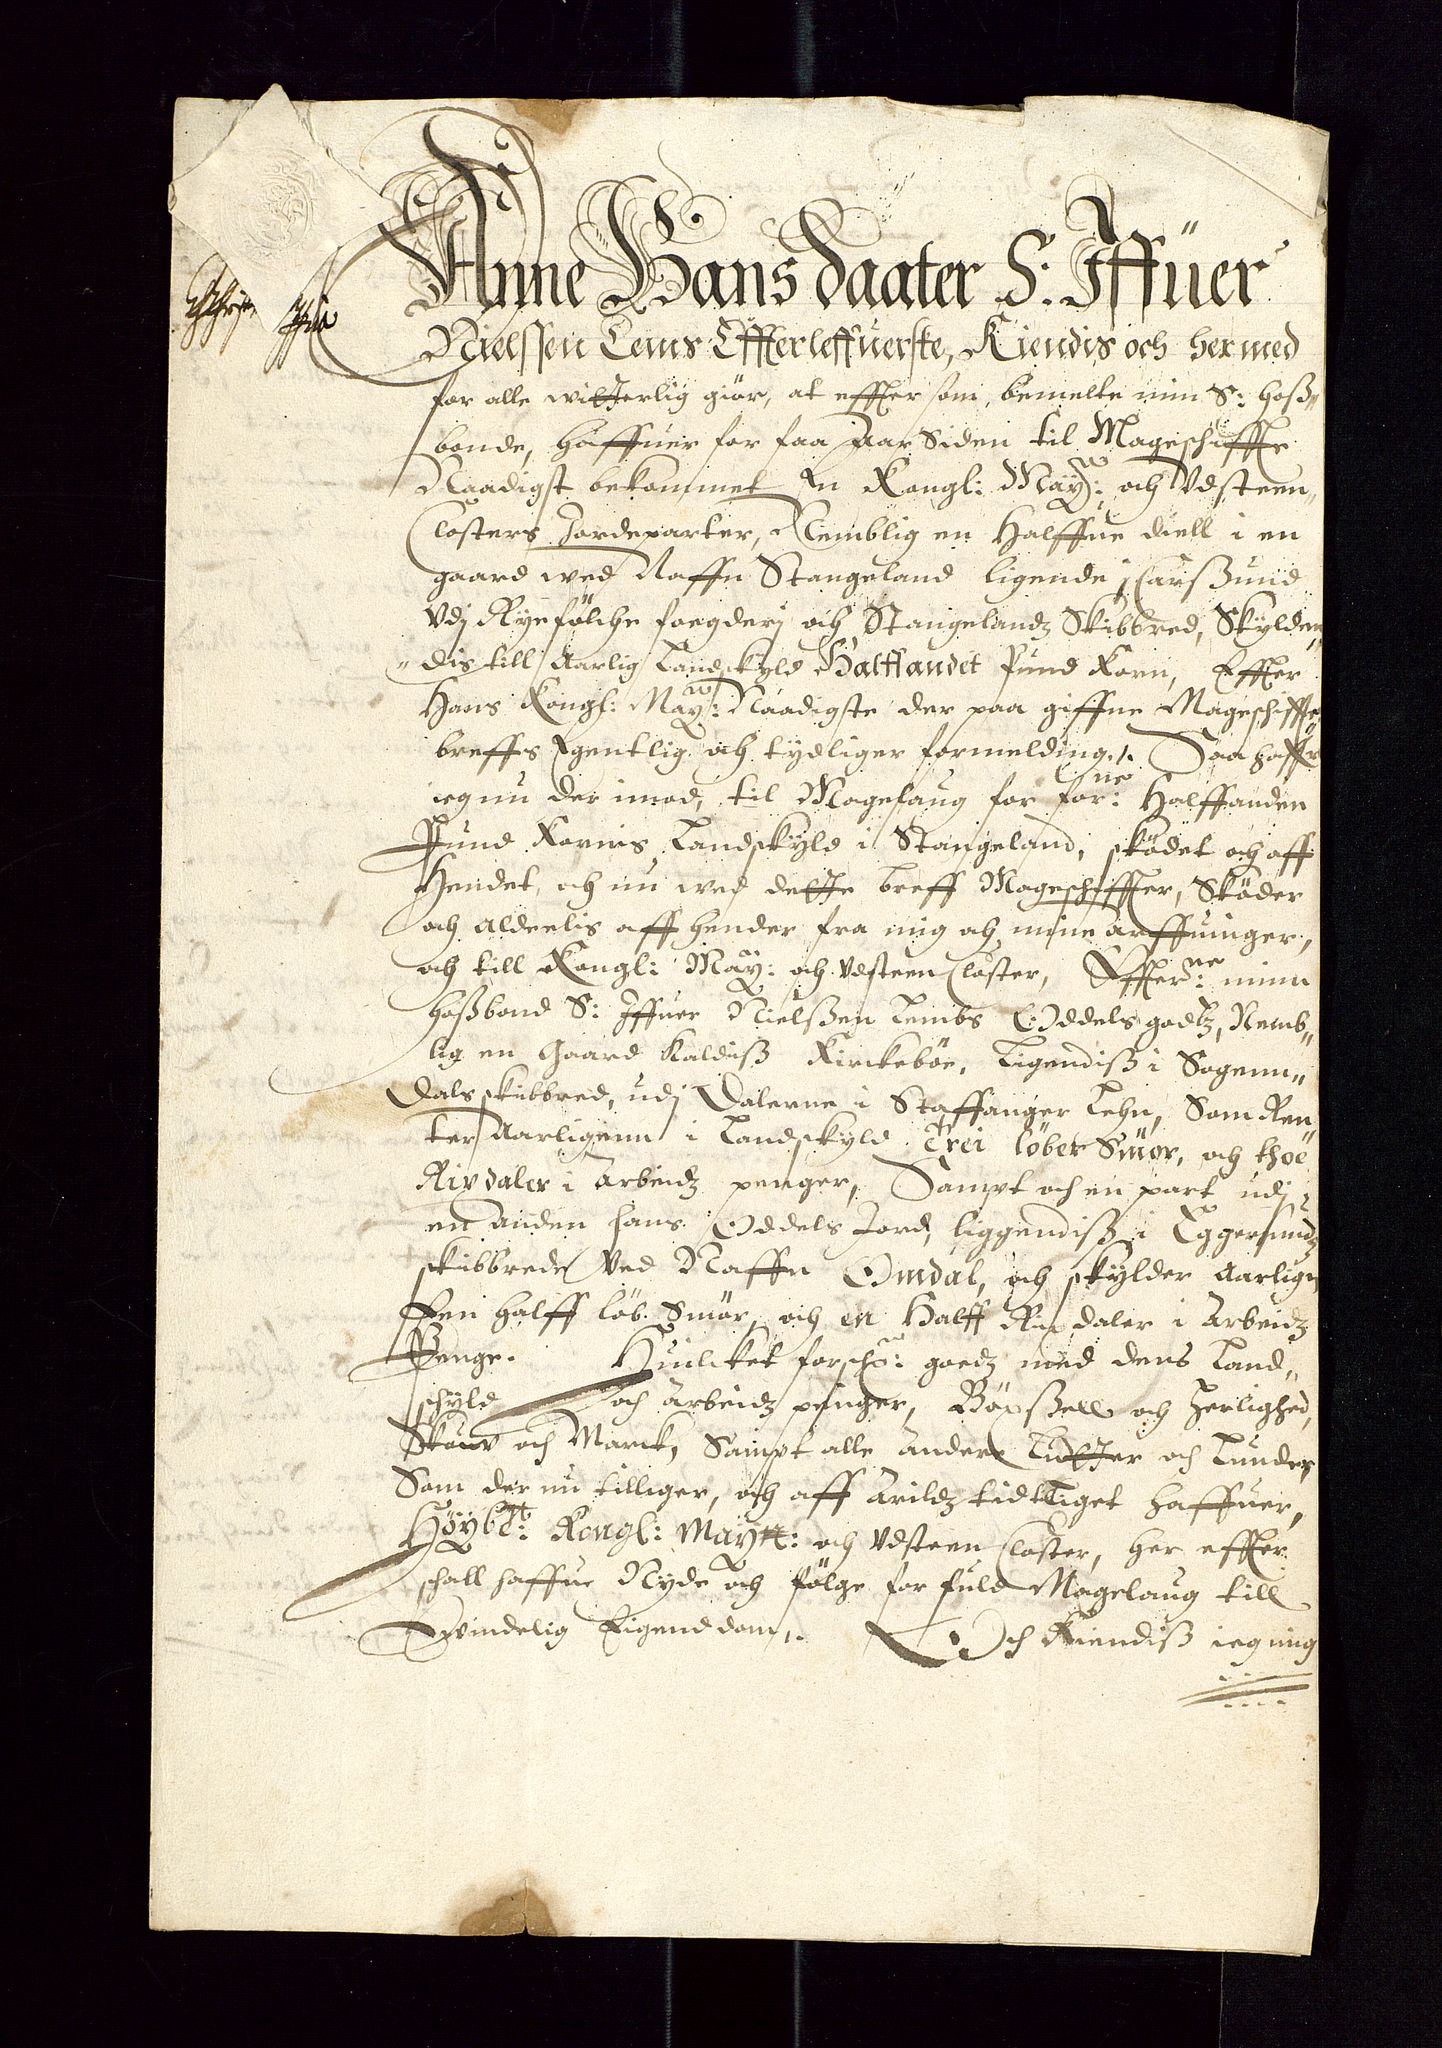 Anne Hans daater S: Iffuer
Nielssen Lems Effterleffuerske, Kiendis och her med
for alle witterlig giør, at effter som, bemelte min S: hoß„
bonde, haffuer for faa Aar Siden til Mageschiffte
Naadigst bekommet En Kongl: May: och Vdsteen„
Closters Jordeparter, Nemblig en Halffue diell i en
gaard wed Naffn Stangeland ligende j Carßund
Vdj Ryefölche foegderj och Stangelandz Skibbred, Skylden„
„dis till Aarlig Landskyld Halffandet Pund Korn, Effter
Hans Kongl: May: Naadigste der paa giffne Mageschiffte
breffs Egentlig och tydliger formelding. Saa haffr
ieg nu der imod, til Magelaug for for:ne Halffanden
Pund Korns Landskyld i Stangeland, skødet och aff
Hendet, och nu wed dette breff Mageschiffter, Skøder
och aldeelis affhender fra mig och mine arffuinger,
och till Kongl: May: och Vdsteen Closter, Effter:ne minn
hoßbond S: Iffuer Nielßen Lembs Oddels godtz, Nemb„
lig en Gaard Kaldiß Kirckebøe, Ligendiß i Sogenn„
dals skibbred, udj Dalerne i Staffanger Lehn, Som Ren
ter Aarligenn i Landskyld Trei löber Smör, och thoe
Rixdaler i arbeidz penger, Sampt och en part udj
en anden hans Oddels Jord, liggendiß i Eggersundz
skibbrede Ved Naffn Omdal, och skylder Aarligen
Een halff löb. Smør, och en Halff Rixdaler i Arbeidz
Penge. Huilcket forsch: goedz med dens Land„
schyld och arbeidz penger, Böxßell och herlighed,
Skouv och Marck, Sampt alle andere Lutter och Lunder,
Som der nu tilliger, och aff Arildz tid tilliget haffuer,
Høyb:te Kongl: May:tt: och Vdsteen Closter, her effter
schall haffue Nyde och følge for fuld Magelaug till
Evindelig Eigenddom. Och Kiendiß ieg mig